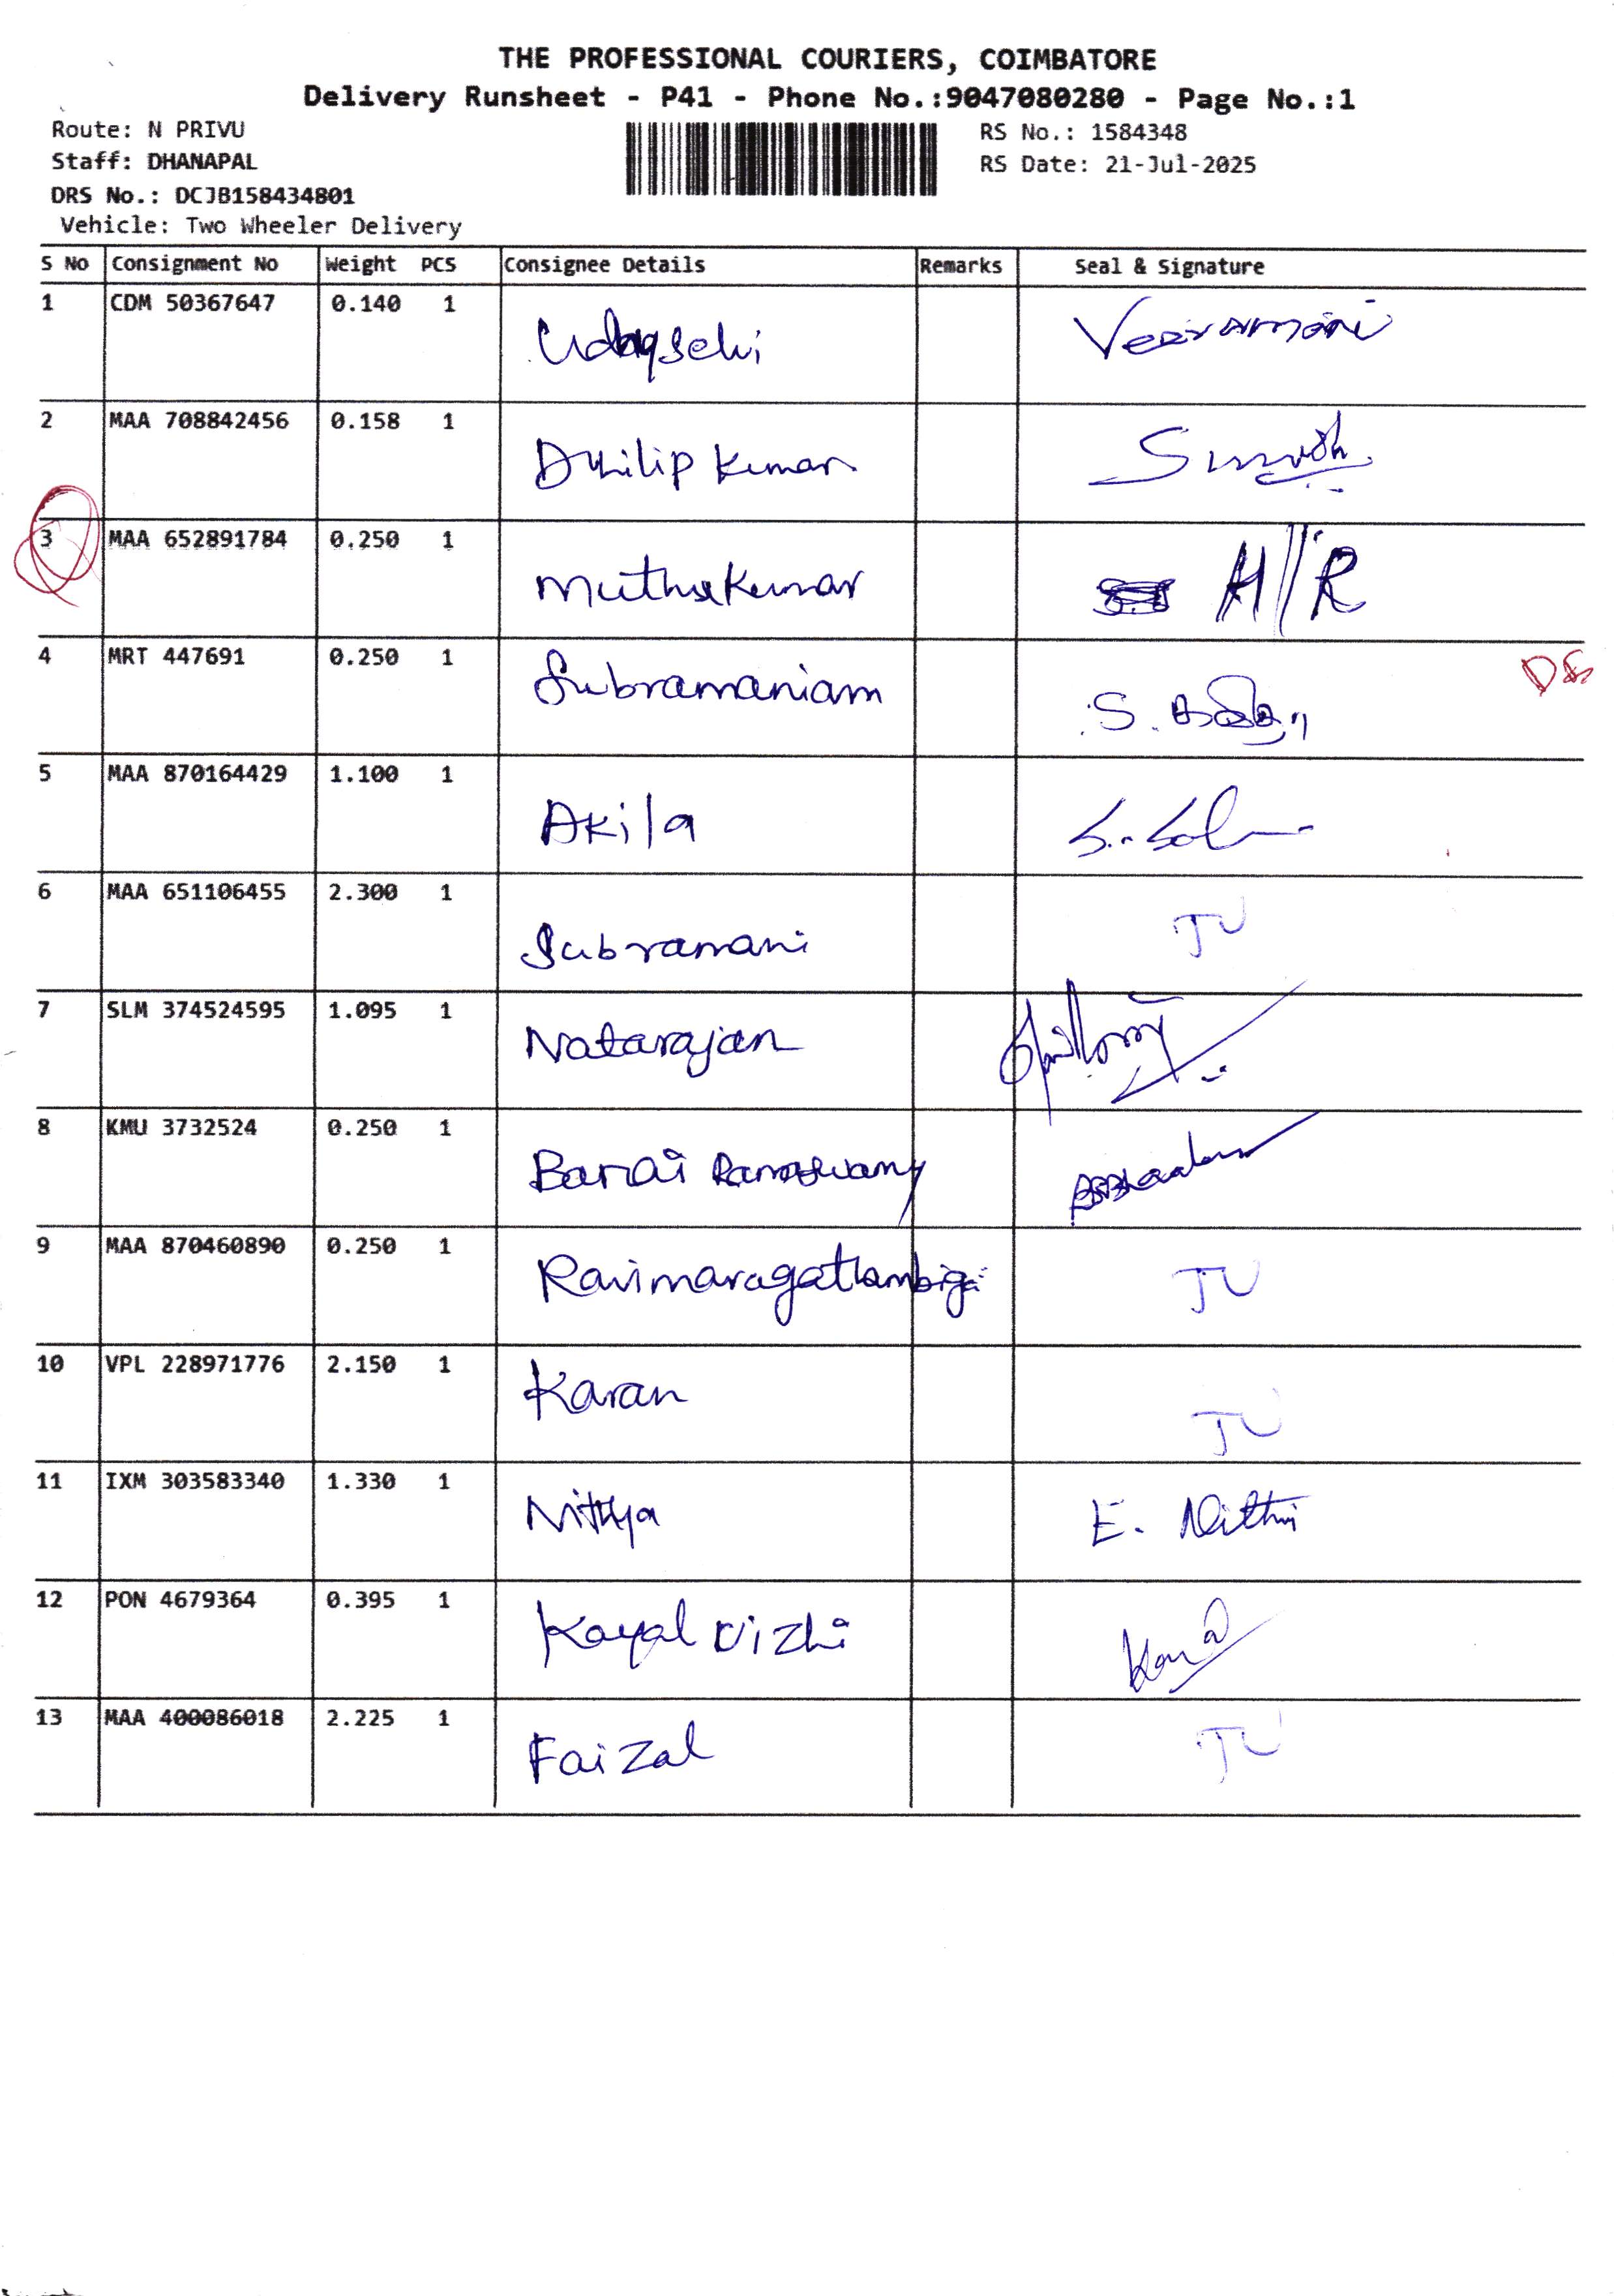 THE PROFESSIONAL COURIERS, COIMBATORE
Delivery Runsheet - P41 - Phone No.:9047080280 - Page No.:1
Route: N PRIVU
Staff: DHANAPAL
DRS No.: DCJB158434801
Vehicle: Two Wheeler Delivery
RS No.: 1584348
RS Date: 21-Jul-2025
S No Consignment No Weight PCS Consignee Details Remarks Seal & Signature
1 CDM 50367647 0.140 1 Veeramani
2 MAA 708842456 0.158 1 Dhilip Kumar
3 MAA 652891784 0.250 1 Muthukumar
4 MRT 447691 0.250 1 Subramaniam S.
5 MAA 870164429 1.100 1 Akila
6 MAA 651106455 2.300 1 Subramani JU
7 SLM 374524595 1.095 1 Natarajan
8 KMU 3732524 0.250 1 Ramaswamy
9 MAA 870460890 0.250 1 JU
10 VPL 228971776 2.150 1 Karan JU
11 IXM 303583340 1.330 1 Nithya E.
12 PON 4679364 0.395 1 Kayal Vizhi
13 MAA 400086018 2.225 1 Faizal JU